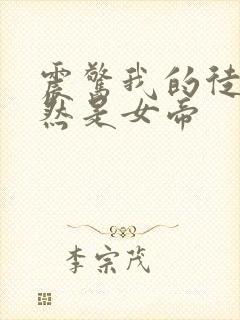 震惊我的徒
然是女帝
李宗茂